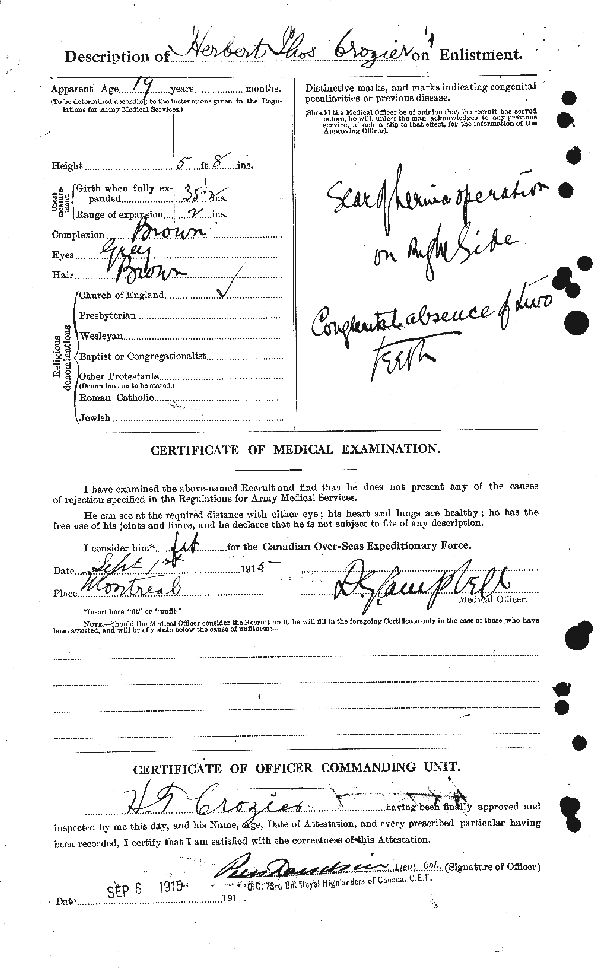 Description of Herbert Thos Crozier on Enlistment.
Apparent Age 19 years months.
(To be determined according to the instructions given in the Regulations for Army Medical Services.)
Height 5 ft. 8 ins.
Chest measurement
Girth when fully expanded 35 ins.
Range of expansion 2 ins.
Complexion Brown
Eyes Grey
Hair Brown
Religious denominations
Church of England ✓
Presbyterian
Wesleyan
Baptist or Congregationalist
Other Protestants
(Denomination to be stated.)
Roman Catholic
Jewish
Distinctive marks, and marks indicating congenital
peculiarities or previous disease.
(Should the Medical Officer be of opinion that the recruit has served
before, he will, unless the man acknowledges to any previous
service, attach a slip to that effect, for the information of the
Approving Officer).
Scar of hernia operation
on Right Side
Congenital absence of two
Teeth
CERTIFICATE OF MEDICAL EXAMINATION.
I have examined the above-named Recruit and find that he does not present any of the causes
of rejection specified in the Regulations for Army Medical Services.
He can see at the required distance with either eye; his heart and lungs are healthy; he has the
free use of his joints and limbs, and he declares that he is not subject to fits of any description.
I consider him* fit for the Canadian Over-Seas Expeditionary Force.
Date Sept 1st 1915
Place Montreal
Campbell
Medical Officer.
*Insert here "fit" or "unfit"
NOTE.—Should the Medical Officer consider the Recruit unfit, he will fill in the foregoing Certificate only in the case of those who have
been attested, and will briefly state below the cause of unfitness:—
CERTIFICATE OF OFFICER COMMANDING UNIT.
H T Crozier having been finally approved and
inspected by me this day, and his Name, Age, Date of Attestation, and every prescribed particular having
been recorded, I certify that I am satisfied with the correctness of this Attestation.
Lieut Col. (Signature of Officer)
O.C. 73rd. Bn. Royal Highlanders of Canada, C.E.F.
SEP 6 1915
Date 191